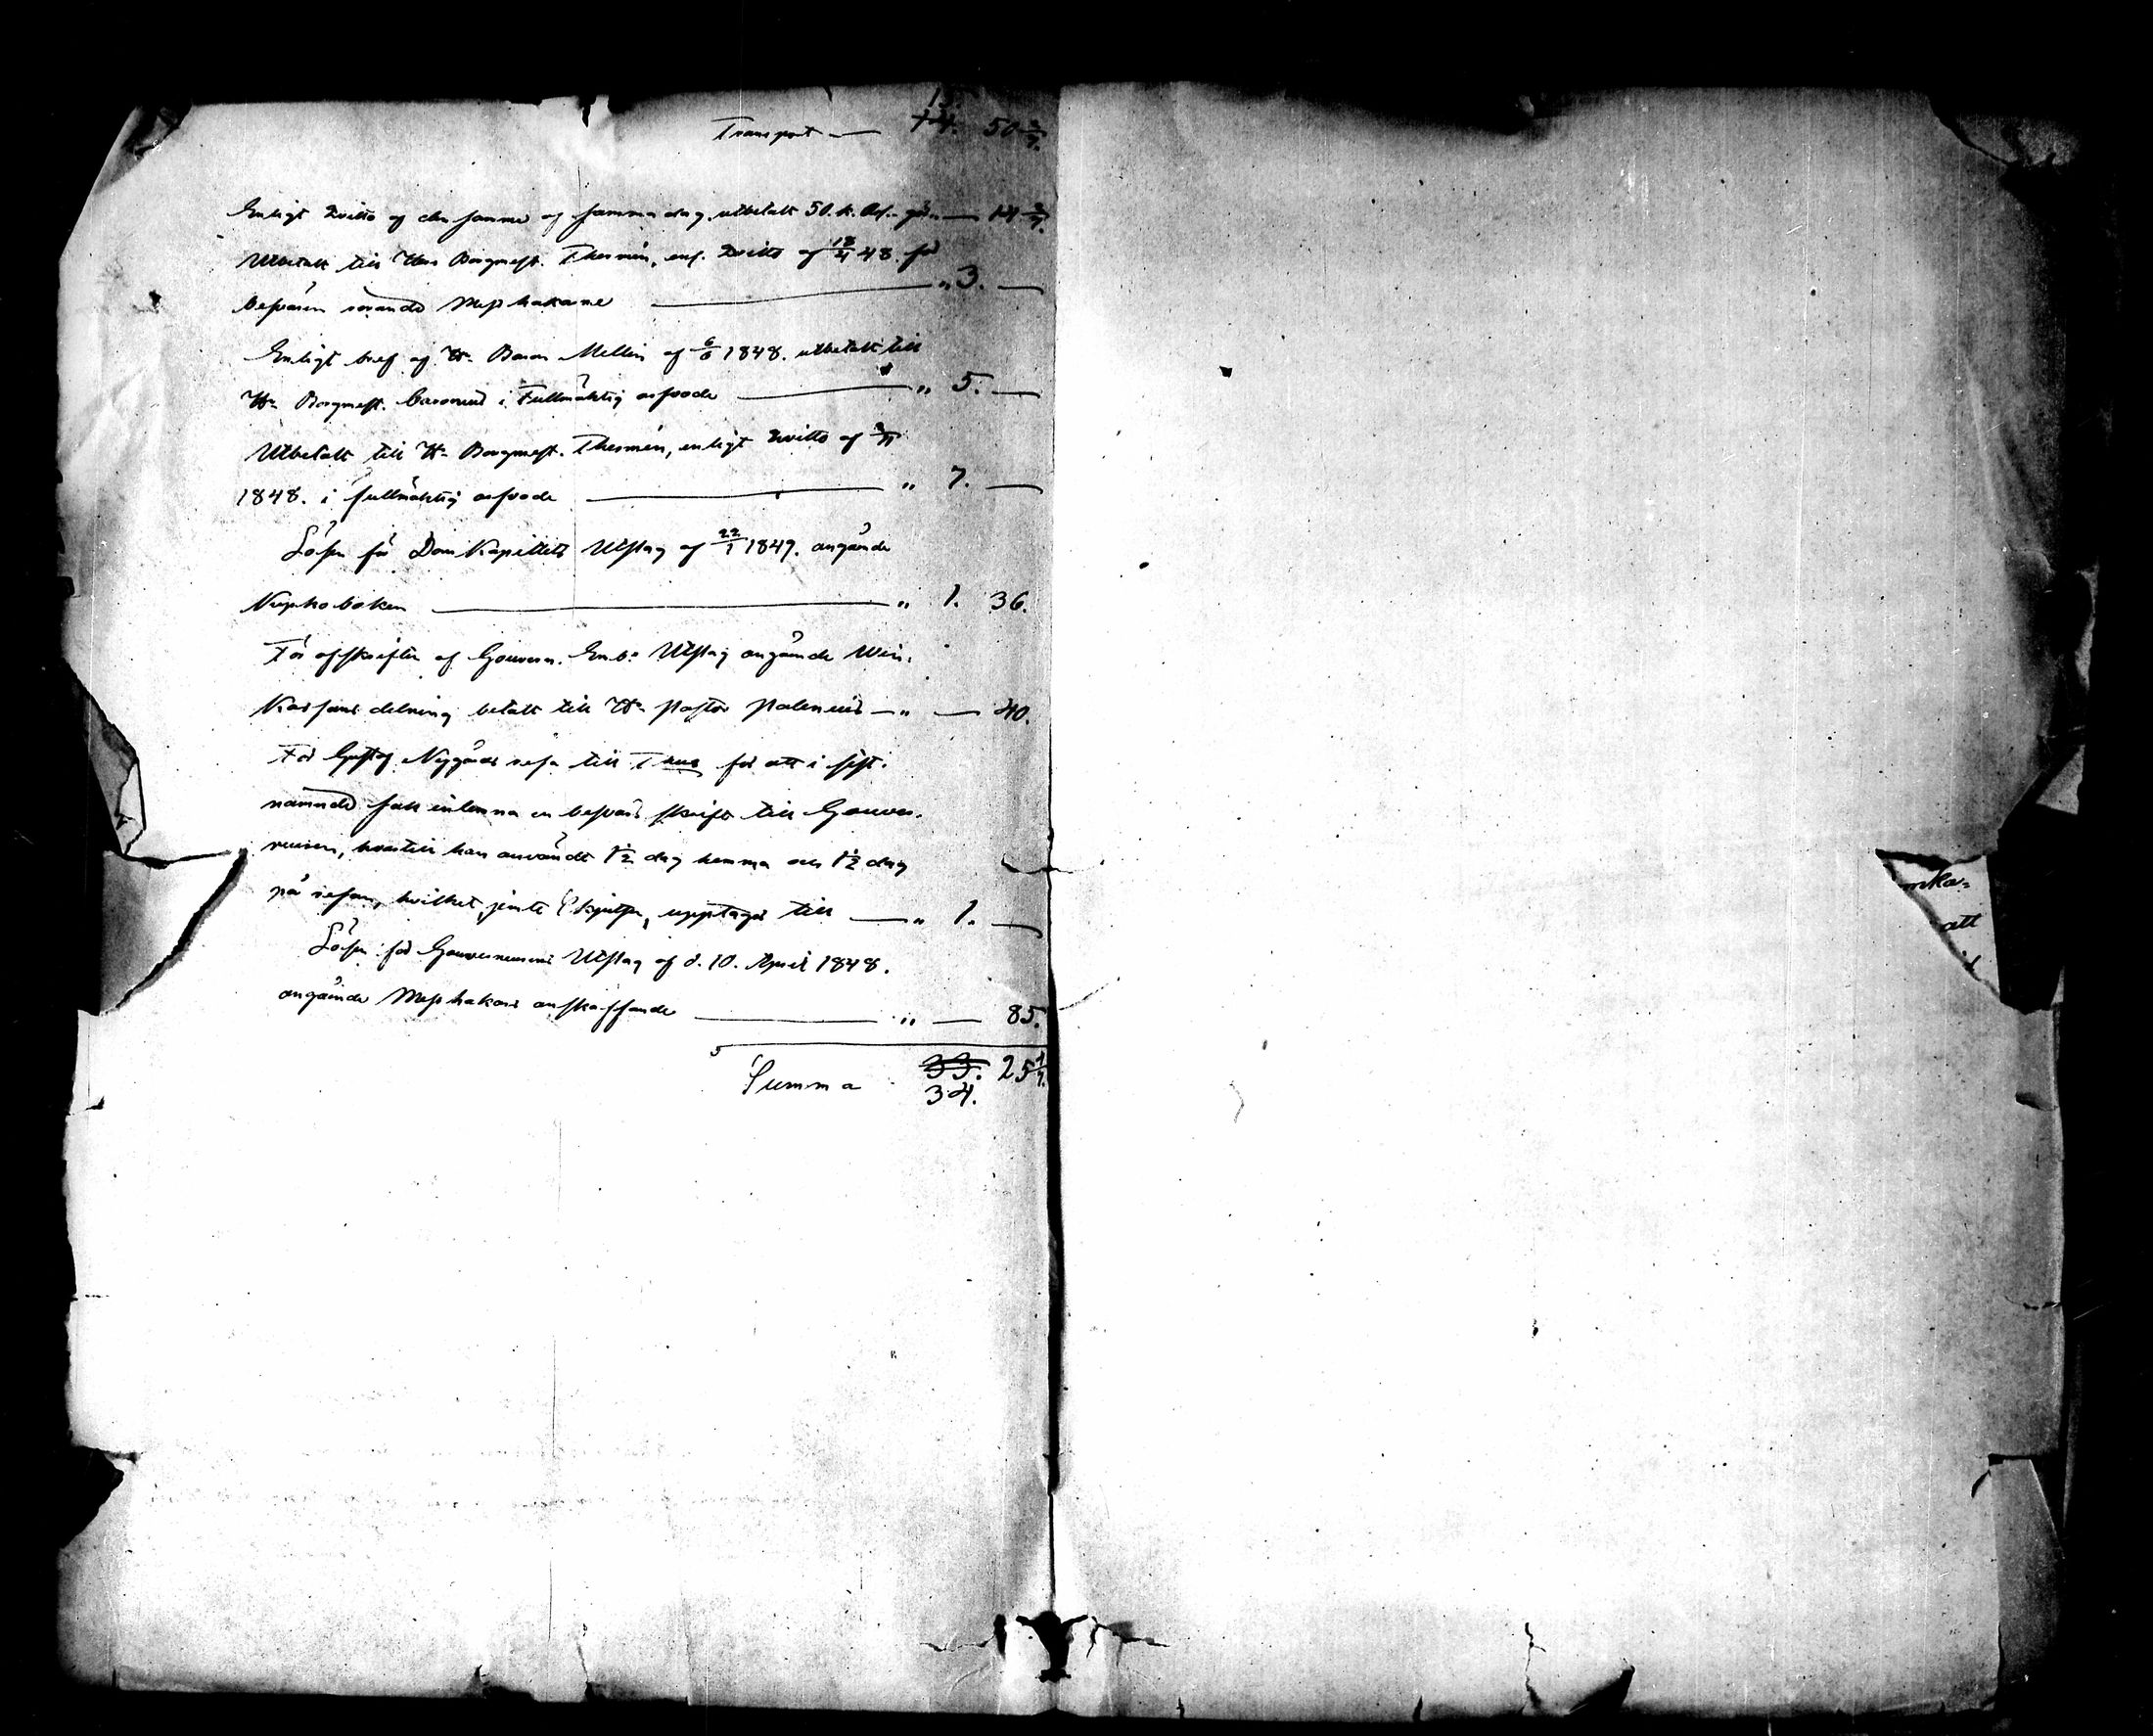 15.
Transport — 14. 50 2/7.
Enligt Qvitto af den samme af samma dag utbetalt 50. k. — 14 2/7.
Utbetalt till Herr Borgmest. Thesmén, enl. Qvitto af 18/4 48. för
besvären rörande Messhakarne — „ 3. —
Enligt bref af Hr Baron Mellin af 6/6 1848. utbetalt till
Hr Borgmest. i Fullmäktig arfvode — „ 5. —
Utbetalt till Hr Borgmest. Thesmén, enligt Qvitto af
1848. i fullmäktig arfvode — „ 7. —
Lösen för Dom Kapitlets Utslag af 22/1 1849. angående
boken — „ 1. 36.
För afskrifter af Gouvern. Emb:s Utslag angående Win-
delning betalt till Hr Pastor — „ — 40.
För Gustaf Nygårds resa till för att i sist-
nämnde fall inlemna en besvärs skrift till Gouver-
neuren, hvartill han användt 1 1/2 dag hemma och 1 1/2 dag
på resan, hvilket jemte Skjutsen, upptages till — „ 1. —
Lösen för Gouverneurens Utslag af d. 10. April 1848.
angående Messhakars anskaffande — „ — 85.
Summa 33. 25 1/7.
34.
mka-
att